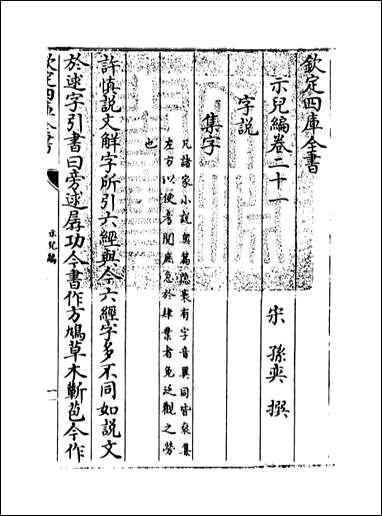 欽定四庫全書
示兒編卷二十一
宋 孫奕 撰
字說
集字
凡諸家小說與篇隱裏有字音異同皆裒集
左方以便考閱庶急於肄業者免泛觀之勞
也
許慎說文解字所引六經與今六經字多不同如說文
於逑字引書曰旁逑孱功今書作方鳩草木蔪苞今作
欽定四庫全書
示兒編
一